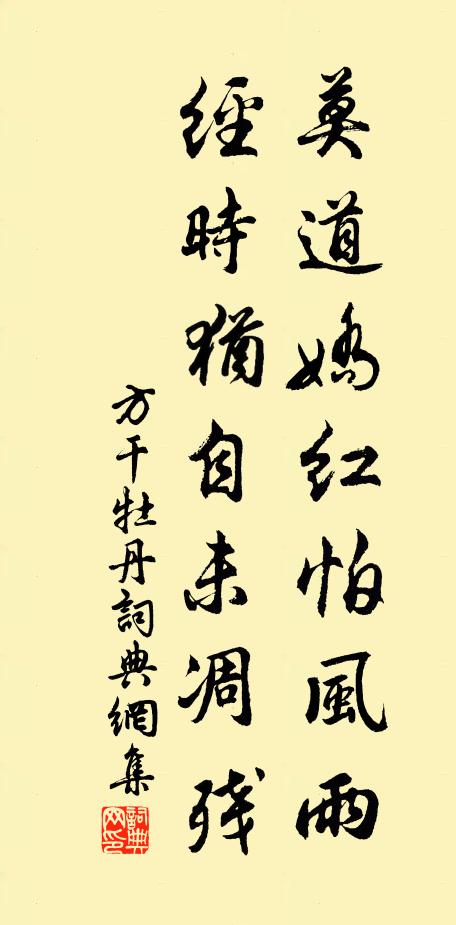 莫道嬌紅怕風雨
經時猶自未凋殘
方干牡丹詞典網集
詞典網印